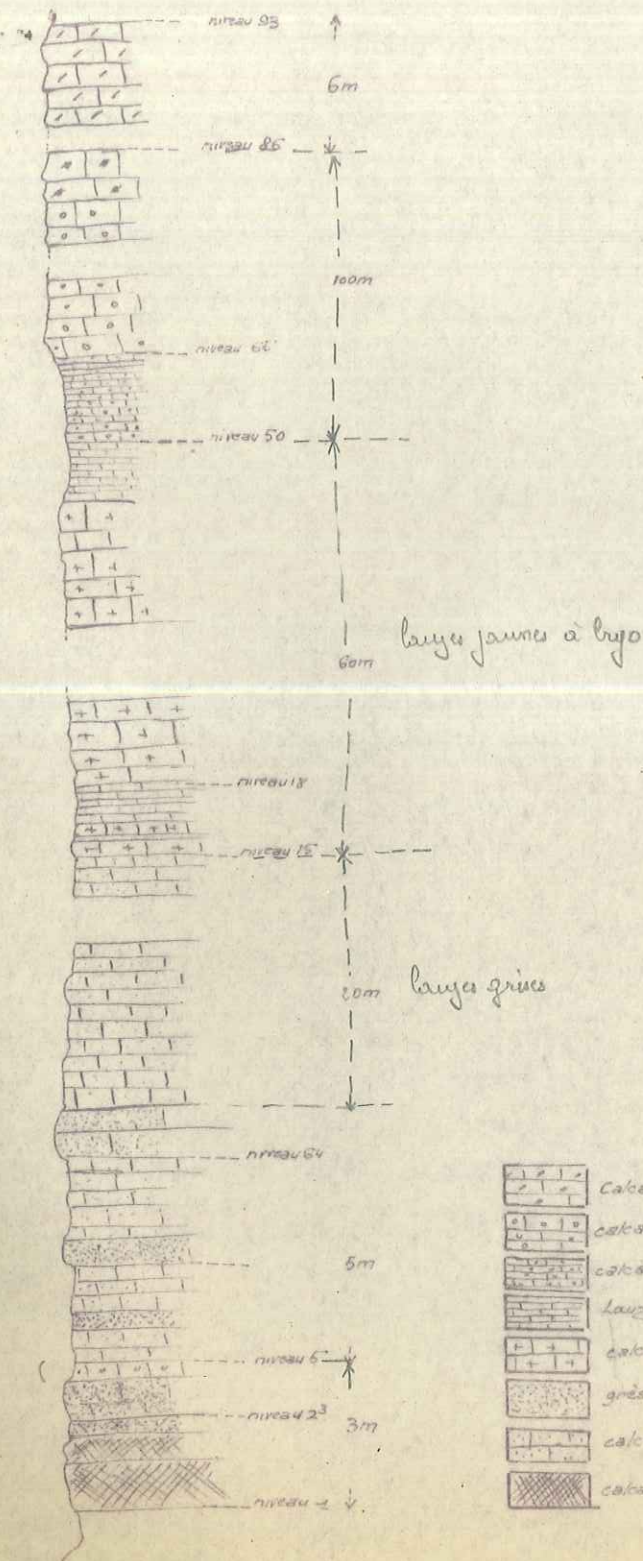 niveau 93
6m
niveau 86
100m
niveau
niveau 50
60m
niveau 18
niveau 15
20m
grises
niveau 64
5m
niveau 5
niveau 2³
3m
niveau 1
Calca
calca
calca
Lauz
calc
grès
calc
calca